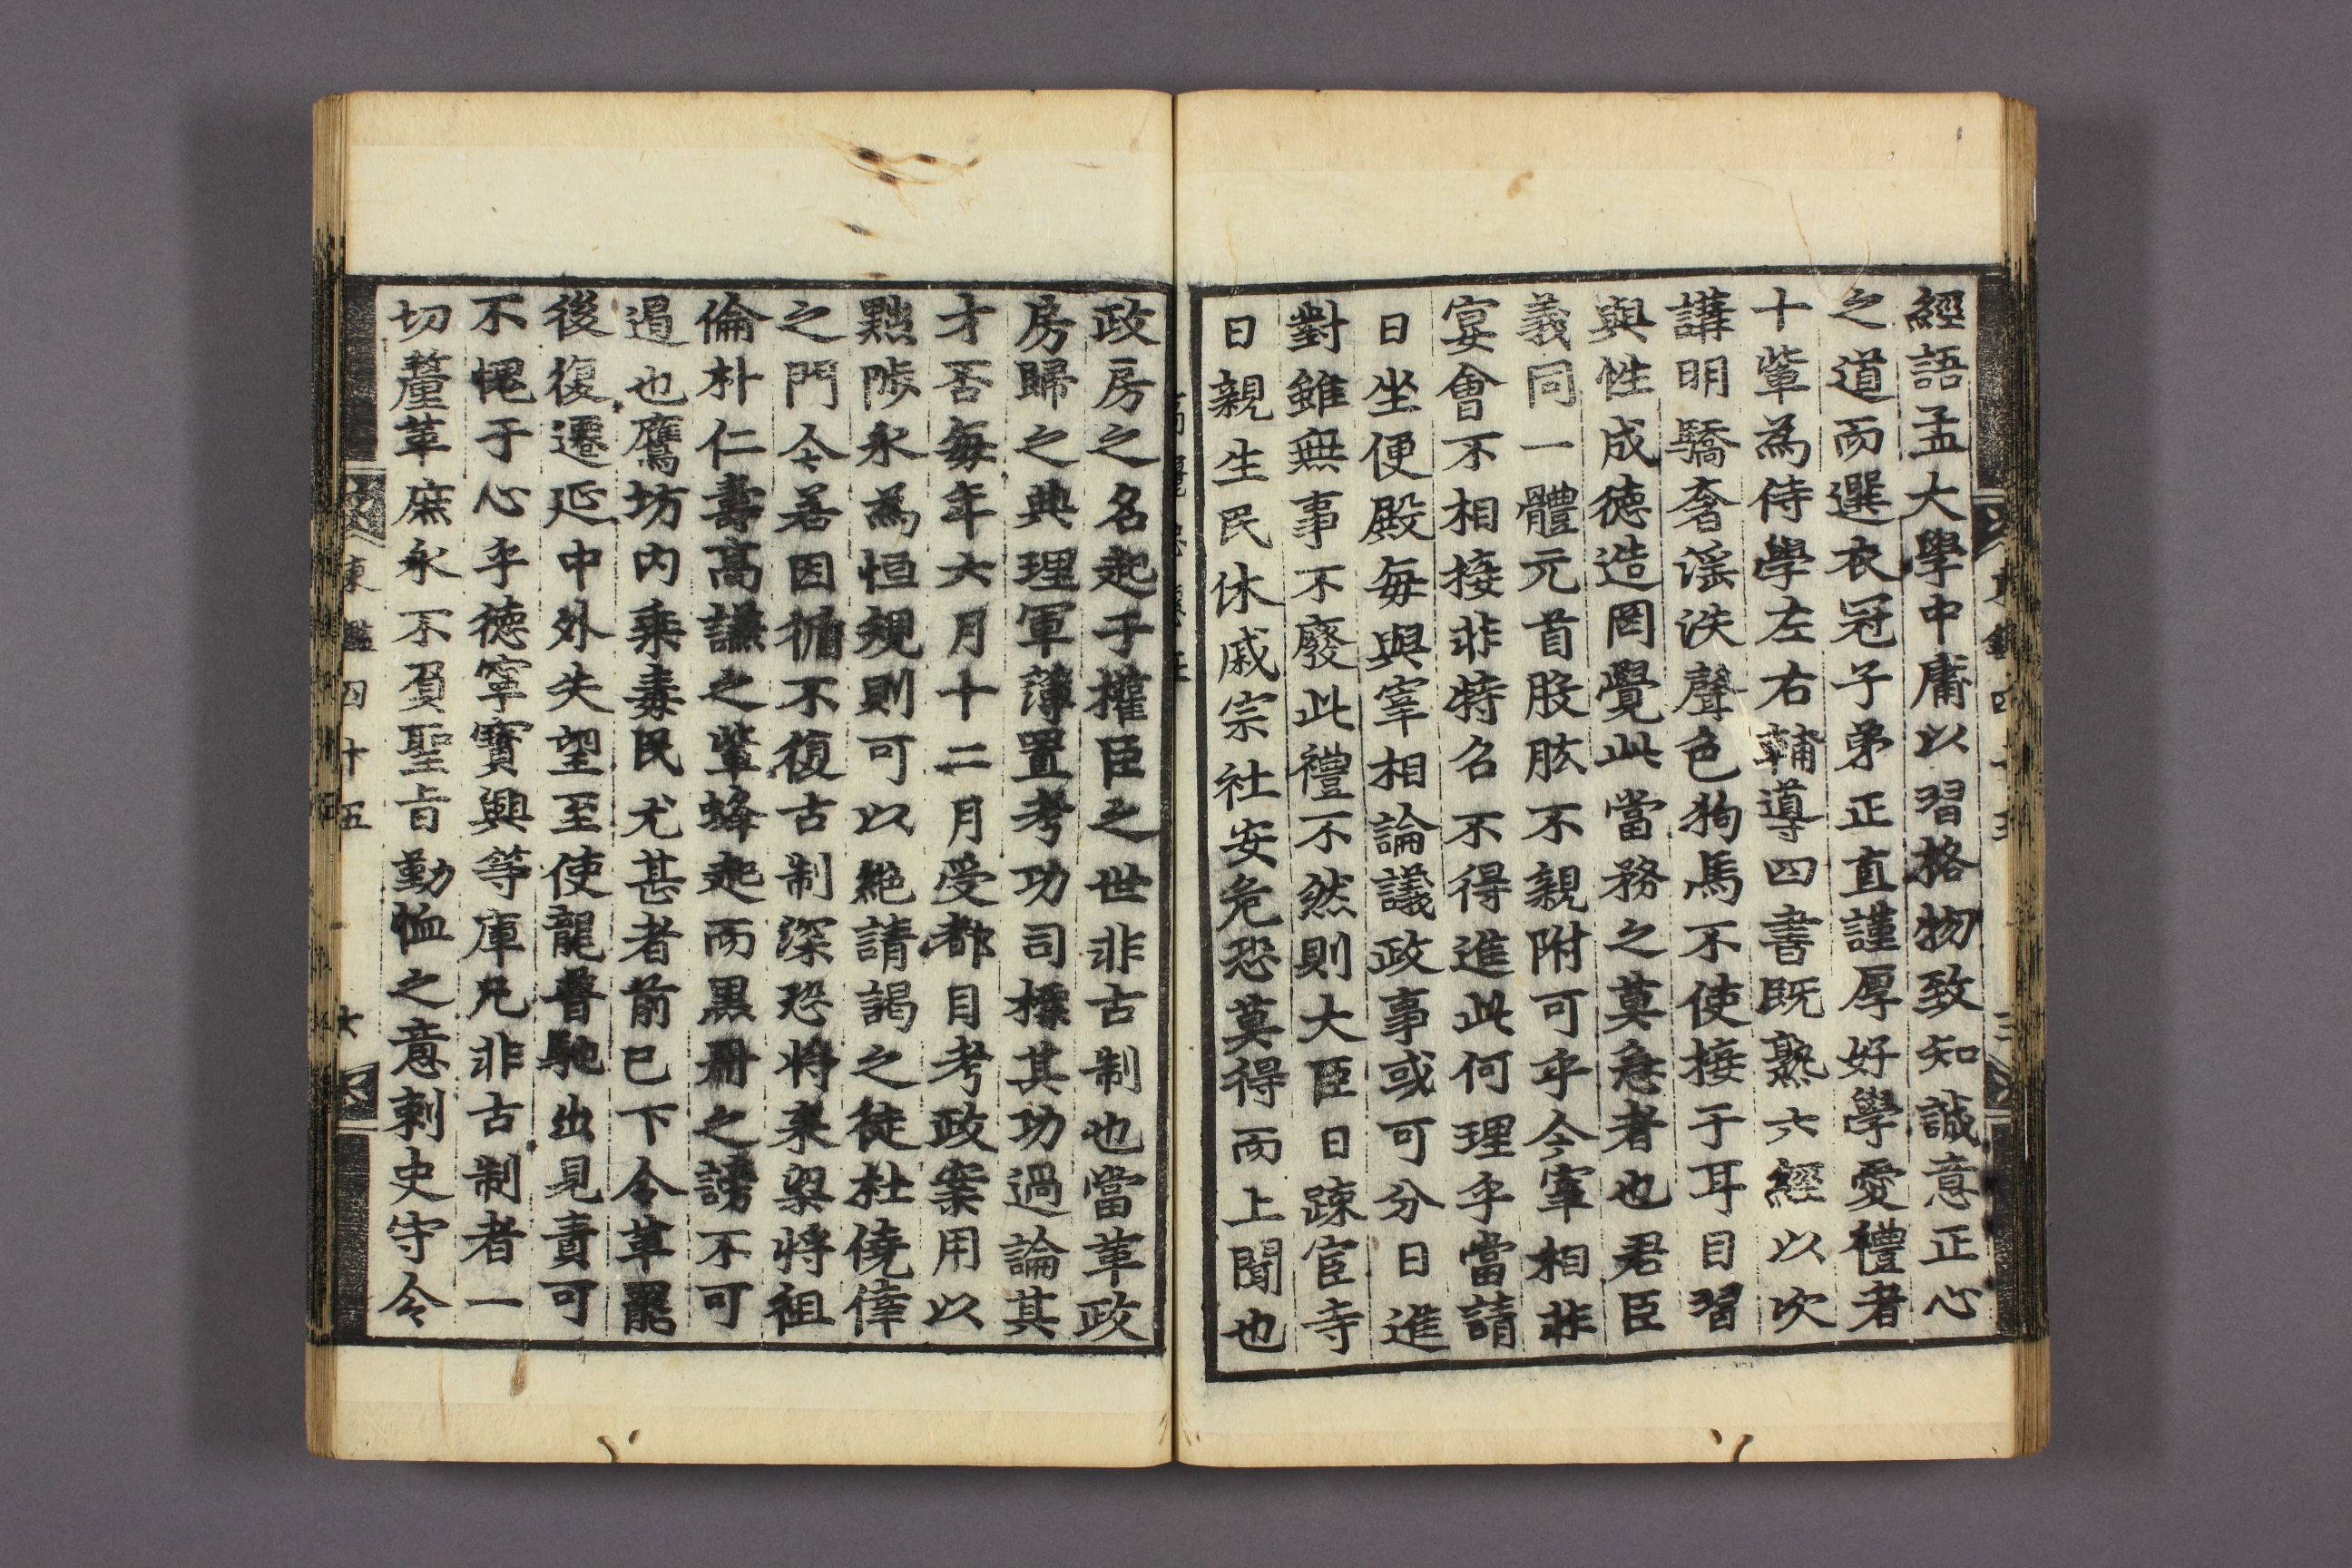 經語孟大學中庸以習格物致知誠意正心
之道而選衣冠子弟正直謹厚好學愛禮者
十輩為侍學左右輔導四書既熟六經以次
講明驕奢淫泆聲色狗馬不使接于耳目習
與性成德造罔覺此當務之莫急者也君臣
義同一體元首股肱不親附可乎今宰相非
宴會不相接非特召不得進此何理乎當請
日坐便殿每與宰相論議政事或可分日進
對雖無事不廢此禮不然則大臣日踈宦寺
日親生民休戚宗社安危恐莫得而上聞也
政房之名起于權臣之世非古制也當革政
房歸之典理軍簿置考功司摽其功過論其
才否每年六月十二月受都目考政案用以
黜陟永為恒規則可以絶請謁之徒杜僥倖
之門今若因循不復古制深恐将来梁將祖
倫朴仁壽髙謙之輩蜂起而黒冊之謗不可
遏也鷹坊内乘毒民尤甚者前已下令革罷
後復遷延中外失望至使龍普馳出見責可
不愧于心乎德寧寶興等庫凡非古制者一
切釐革庶永不負聖旨勤恤之意刺史守令
東鑑四十五
六